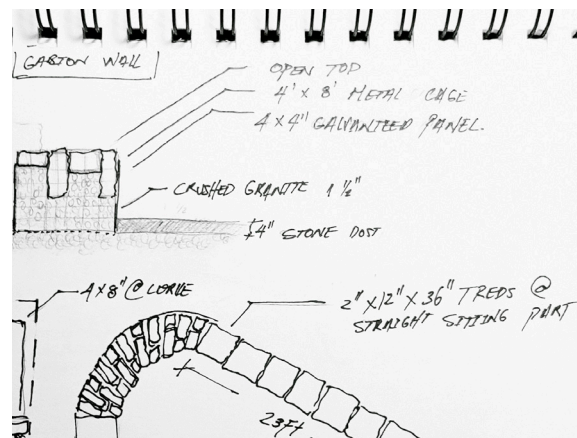 GABION WALL
OPEN TOP
4' X 8' METAL CAGE
4 X 4" GALVANIZED PANEL.
CRUSHED GRANITE 1 ½"
4" STONE DOST
4 X 8" @ CURVE
2" X 12" X 36" TREDS @
STRAIGHT SITTING PART
23FT